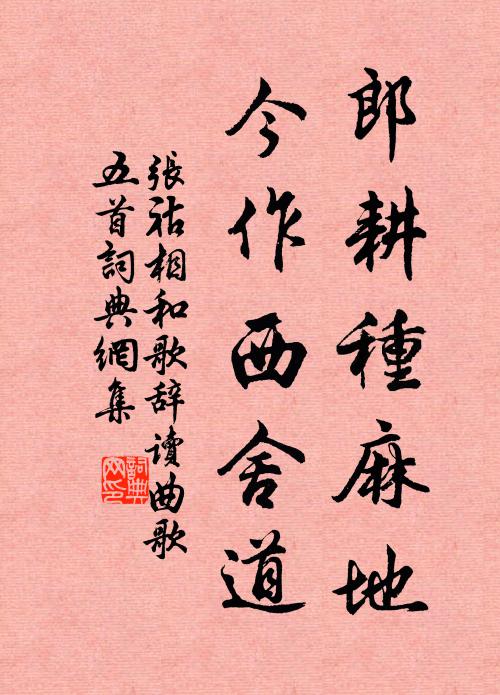 郎耕種麻地
今作西舍道
張祜相和歌辞讀曲歌
五首詞典網集
詞典網印